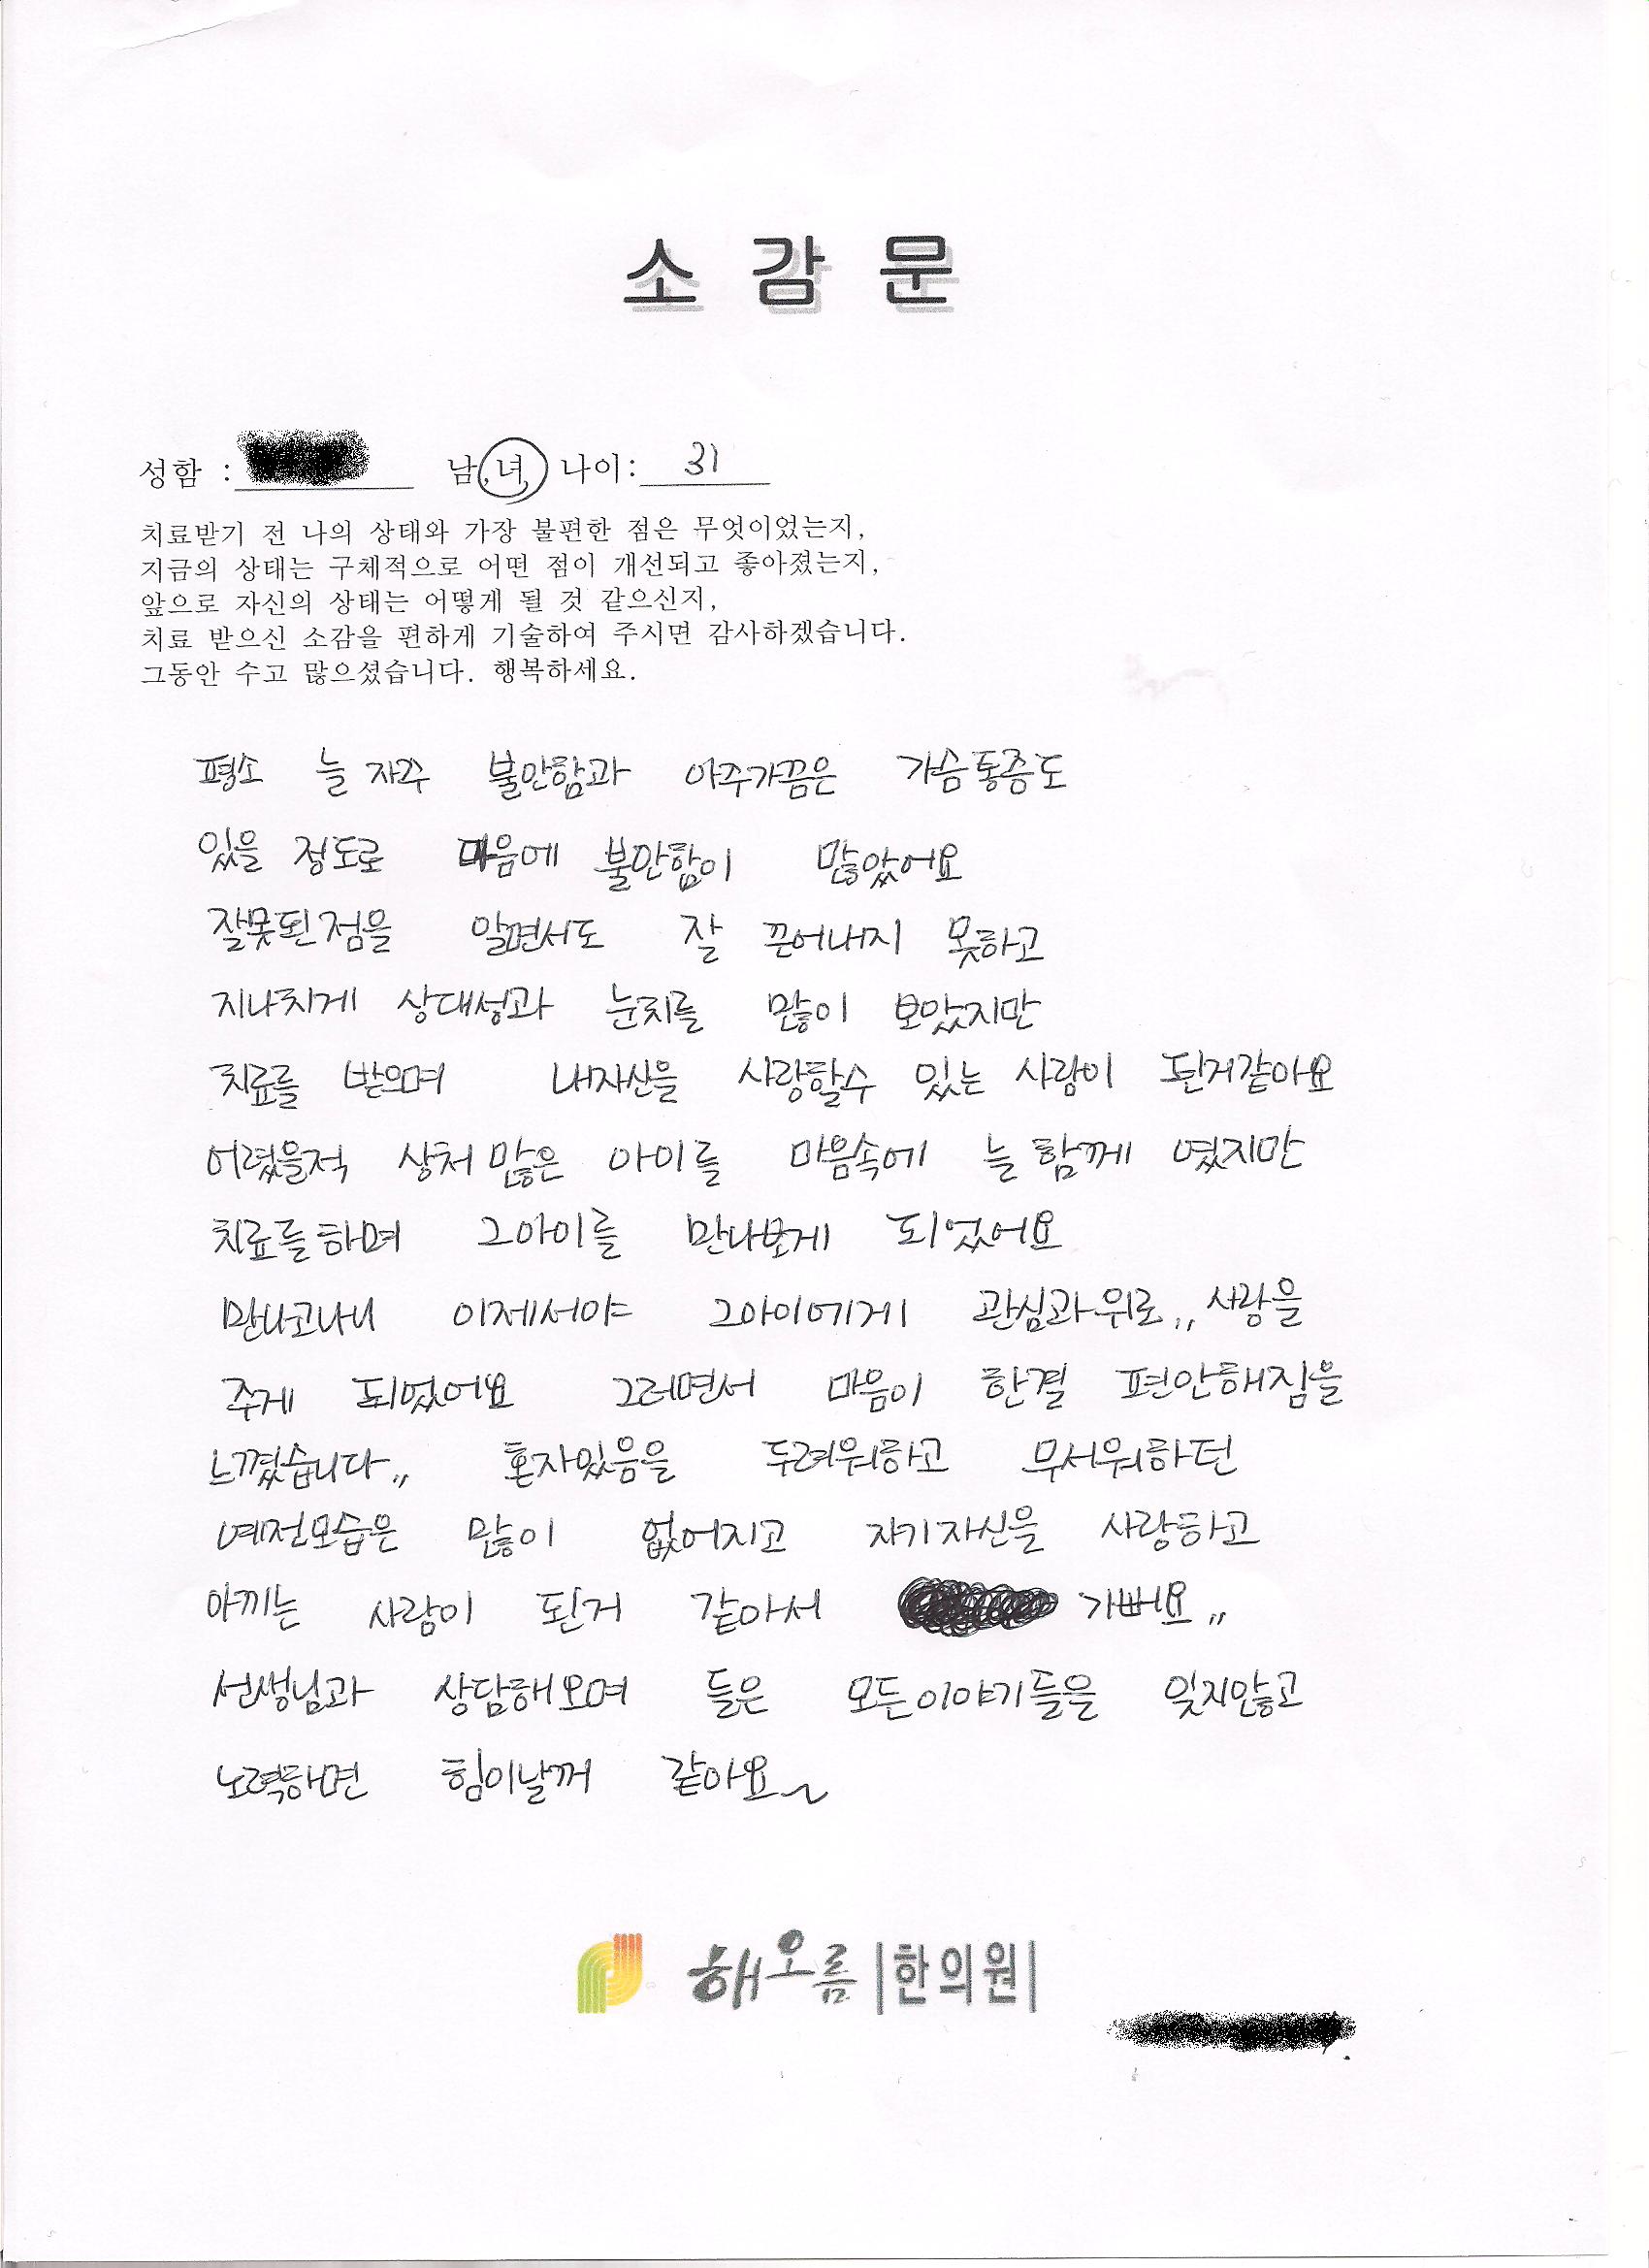 소 감 문
성함 : 남, 녀, 나이: 31
치료받기 전 나의 상태와 가장 불편한 점은 무엇이었는지,
지금의 상태는 구체적으로 어떤 점이 개선되고 좋아졌는지,
앞으로 자신의 상태는 어떻게 될 것 같으신지,
치료 받으신 소감을 편하게 기술하여 주시면 감사하겠습니다.
그동안 수고 많으셨습니다. 행복하세요.
평소 늘 자주 불안함과 아주가끔은 가슴통증도
있을 정도로 마음에 불안함이 많았어요
잘못된점을 알면서도 잘 끈어내지 못하고
지나치게 상대성과 눈치를 많이 보았지만
치료를 받으며 내자신을 사랑할수 있는 사람이 된거같아요
어렸을적 상처많은 아이를 마음속에 늘 함께 였지만
치료를하며 그아이를 만나보게 되었어요
만나고나니 이제서야 그아이에게 관심과위로,, 사랑을
주게 되었어요 그러면서 마음이 한결 편안해짐을
느꼈습니다,, 혼자있음을 두려워하고 무서워하던
예전모습은 많이 없어지고 자기자신을 사랑하고
아끼는 사람이 된거 같아서 기뻐요,,
선생님과 상담해오며 들은 모든이야기들을 잊지않고
노력하면 힘이날꺼 같아요~
해오름 |한의원|